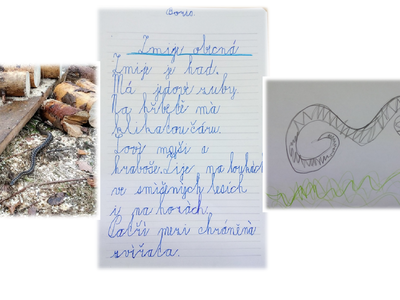 Boris.
Zmije obecná
Zmije je had.
Má jedové zuby.
Na hřbetě má
klikatou čáru.
Loví myši a
hraboše. Žije na loukách
ve smíšených lesích
i na horách.
Patří mezi chráněná
zvířata.